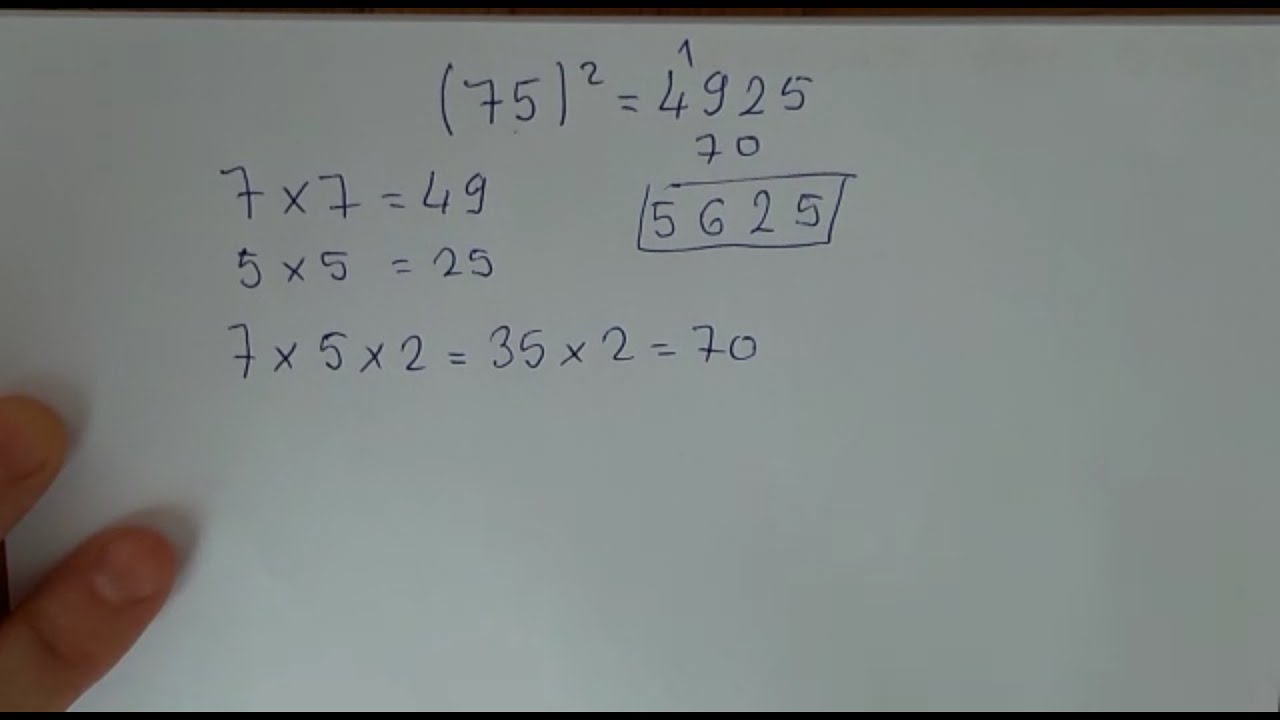 1
(75)² = 4925
70
5625
7 × 7 = 49
5 × 5 = 25
7 × 5 × 2 = 35 × 2 = 70